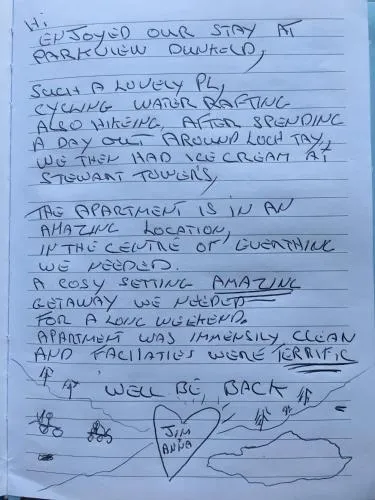 Hi
ENJOYED OUR STAY AT
PARKVIEW DUNKELD,
SUCH A LOVELY PL,
CYCLING WATER RAFTING
ALSO HIKEING, AFTER SPENDING
A DAY OUT AROUND LOCH TAY,
WE THEN HAD ICE CREAM AT
STEWART TOWERS,
THE APARTMENT IS IN AN
AMAZING LOCATION,
IN THE CENTRE OF EVERTHING
WE NEEDED.
A COSY SETTING AMAZING
GETAWAY WE NEEDED
FOR A LONG WEEKEND.
APARTMENT WAS IMMENSILY CLEAN
AND FACILATIES WERE TERRIFIC
WELL BE, BACK
JIM
ANNA